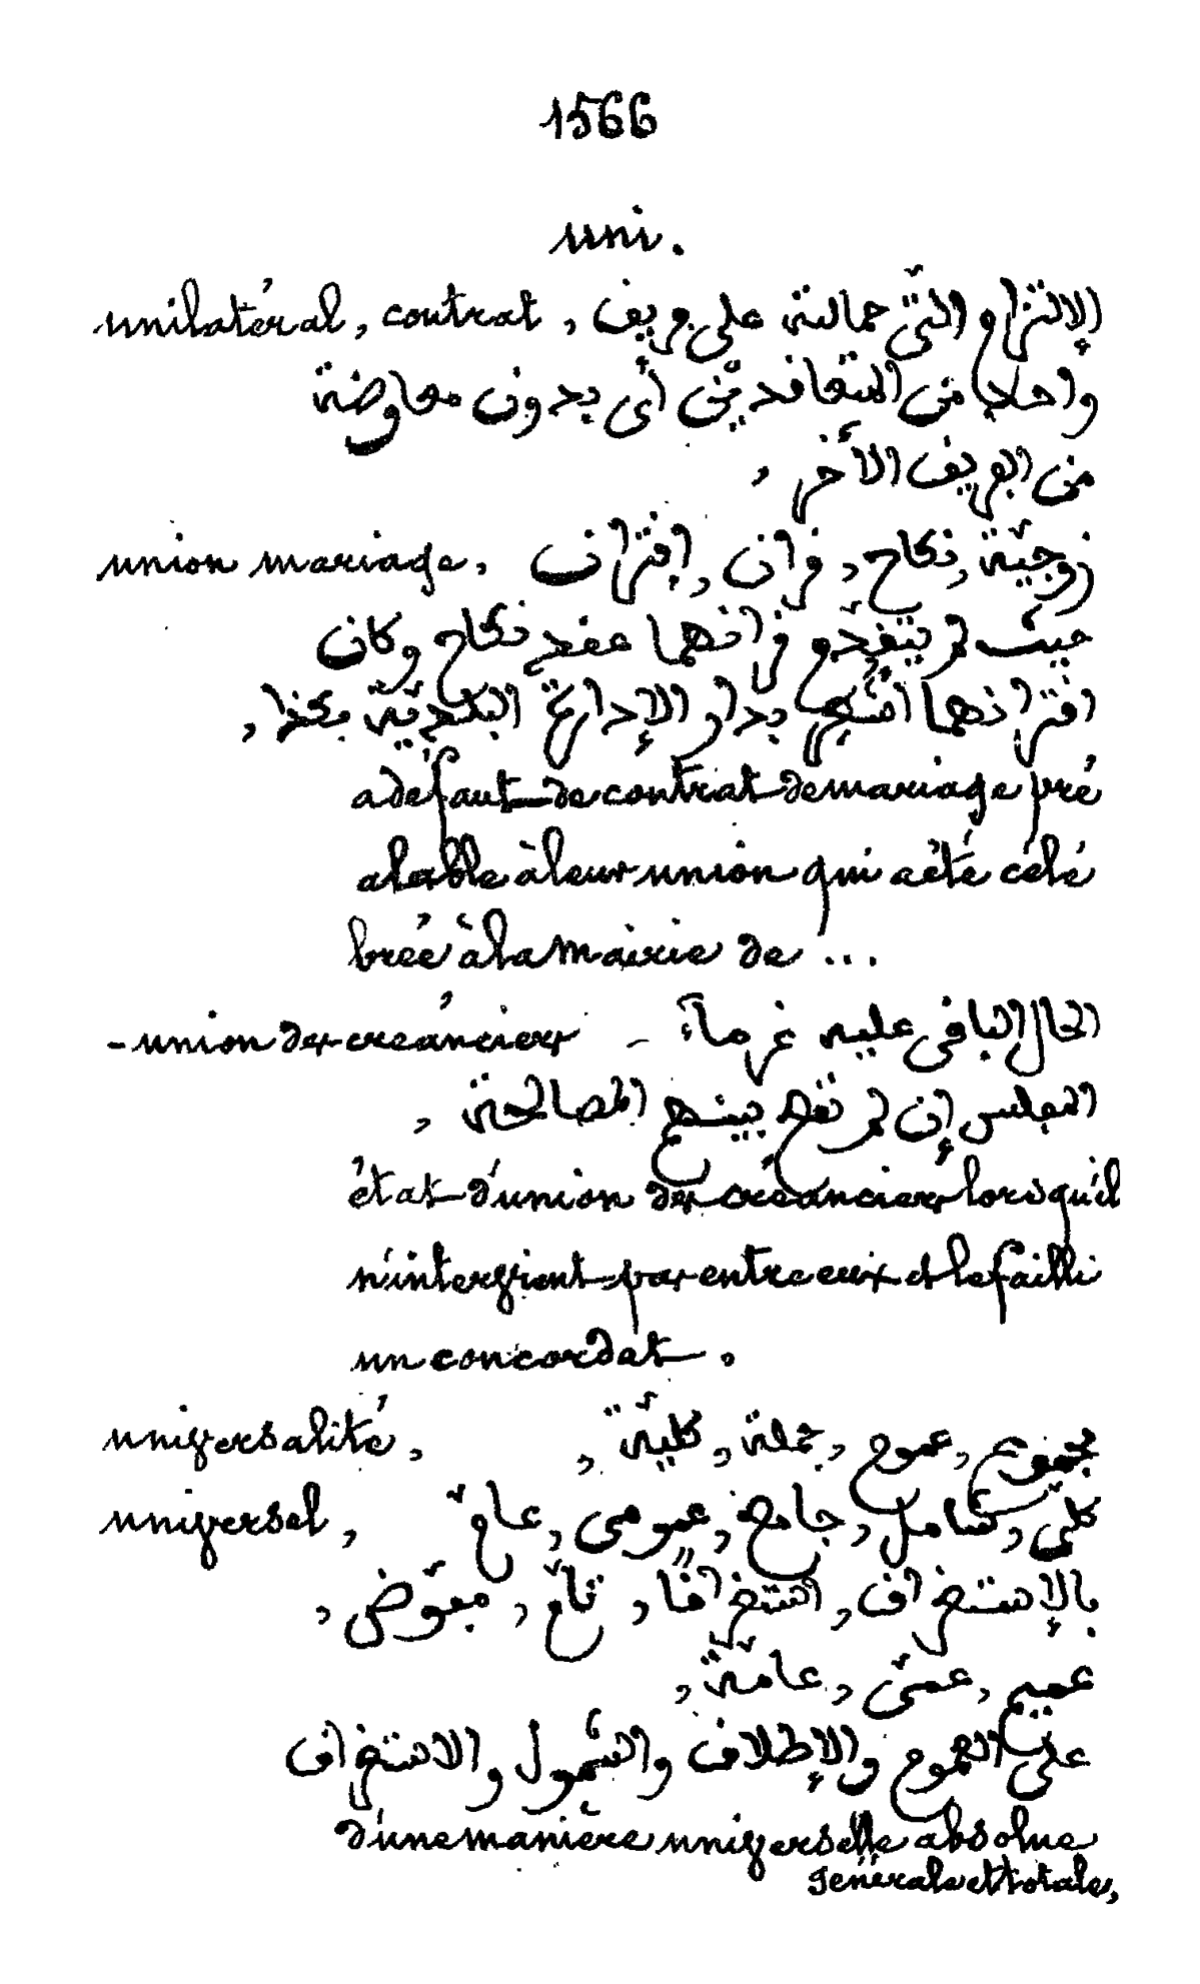 1566
uni.
unilatéral, contrat, الإلتزام التّي حمالته على فريف
واحد من المتعاقديّن أي بدون معاوضة
من الفريف الأخر,
union mariage, زوجيّة, نكاح, قران, إقتران
حيث لم يتقدّم قرانهما عقد نكاح وكان
اقترانهما اشهر بدار الإدارة البلديّة بكذا,
a défaut de contrat de mariage pré
alable à leur union qui a été célé
brée à la mairie de ...
- union des créanciers - الحال الباقي عليه غرماء
المفلس إن لم تقع بينهم المصالحة,
état d'union des créanciers lorsqu'il
n'intervient pas entre eux et le failli
un concordat,
universalité, مجموع, عموم, جملة, كليّة,
universel, كلّي, شامل, جامع, عمومي, عامّ
بالإستغراق, استغراقًا, تامّ, مفوّض,
عميم, عمّي, عامّة,
على العموم والإطلاق والشمول والاستغراق
d'une manière universelle absolue
générale et totale,